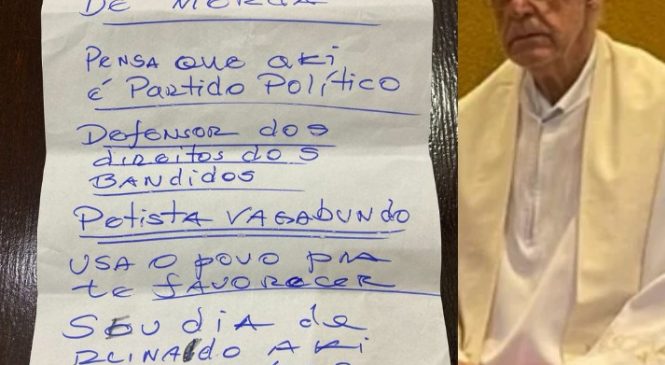 DE MERDA
PENSA que aki
é PARTIDO Político
DEFENSOR DOS
direitos do s
BANDIDOS
Petista VAGABUNDO
USA O POVO PRA
te FAVORECER
SEU DIA de
REINADO AKI